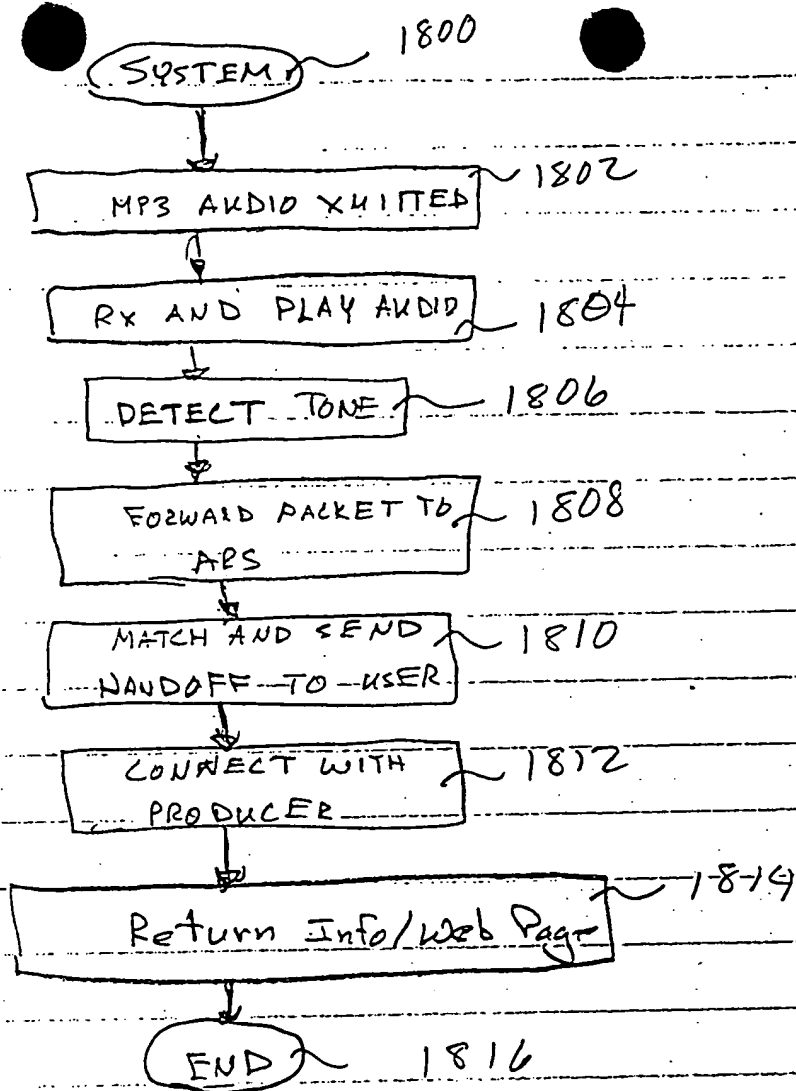 1800
SYSTEM
1802
MP3 AUDIO XMITTED
RX AND PLAY AUDIO
1804
DETECT TONE
1806
FORWARD PACKET TO
1808
ARS
MATCH AND SEND
1810
HANDOFF TO USER
CONNECT WITH
1812
PRODUCER
1814
Return Info/Web Page
END
1816